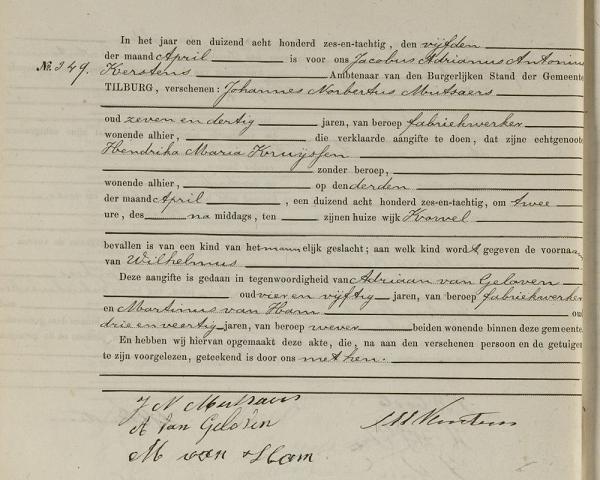 In het jaar een duizend acht honderd zes-en-tachtig, den vijfden
der maand April is voor ons Jacobus Adrianus Antonius
No. 349. Kerstens Ambtenaar van den Burgerlijken Stand der Gemeente
TILBURG, verschenen: Johannes Norbertus Mutsaers
oud zeven en dertig jaren, van beroep fabriekwerker
wonende alhier, die verklaarde aangifte te doen, dat zijne echtgenoote
Hendrika Maria Kruijssen
zonder beroep,
wonende alhier, op den derden
der maand April, een duizend acht honderd zes-en-tachtig, om twee
ure, des na middags, ten zijnen huize wijk Korvel
bevallen is van een kind van het mannelijk geslacht; aan welk kind wordt gegeven de voornaam
van Wilhelmus
Deze aangifte is gedaan in tegenwoordigheid van Adriaan van Geloven
oud vier en vijftig jaren, van beroep fabriekwerker
en Martinus van Ham oud
drie en veertig jaren, van beroep wever beiden wonende binnen deze gemeente.
En hebben wij hiervan opgemaakt deze akte, die, na aan den verschenen persoon en de getuigen
te zijn voorgelezen, geteekend is door ons met hen.
J N Mutsaers
A van Geloven
M van Ham